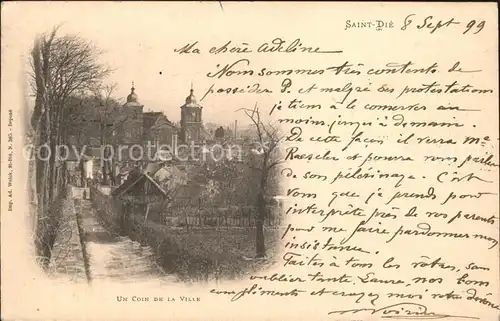 SAINT-DIÉ
8 Sept 99
Ma chère Adeline
Nous sommes très contents de
posséder P. et malgré ses protestations
je tiens à le conserver au
moins jusqu'à demain.
De cette façon il verra Mr
et pourra vous parler
de son pélerinage. C'est
vous que je prends pour
interprète près de vos parents
pour me faire pardonner mon
insistance.
Faites à tous les vôtres, sans
oublier tante Laure, nos bons
compliments et croyez moi votre
UN COIN DE LA VILLE
Imp. Ad. Weick, St-Dié, N. Déposé
depositphotos